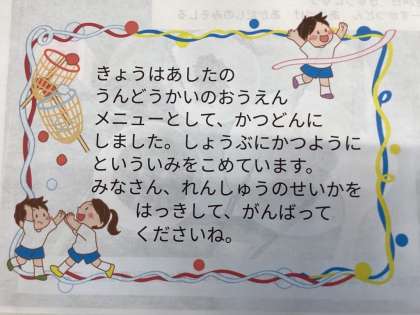 きょうはあしたの
うんどうかいのおうえん
メニューとして、かつどんに
しました。しょうぶにかつように
といういみをこめています。
みなさん、れんしゅうのせいかを
はっきして、がんばって
くださいね。